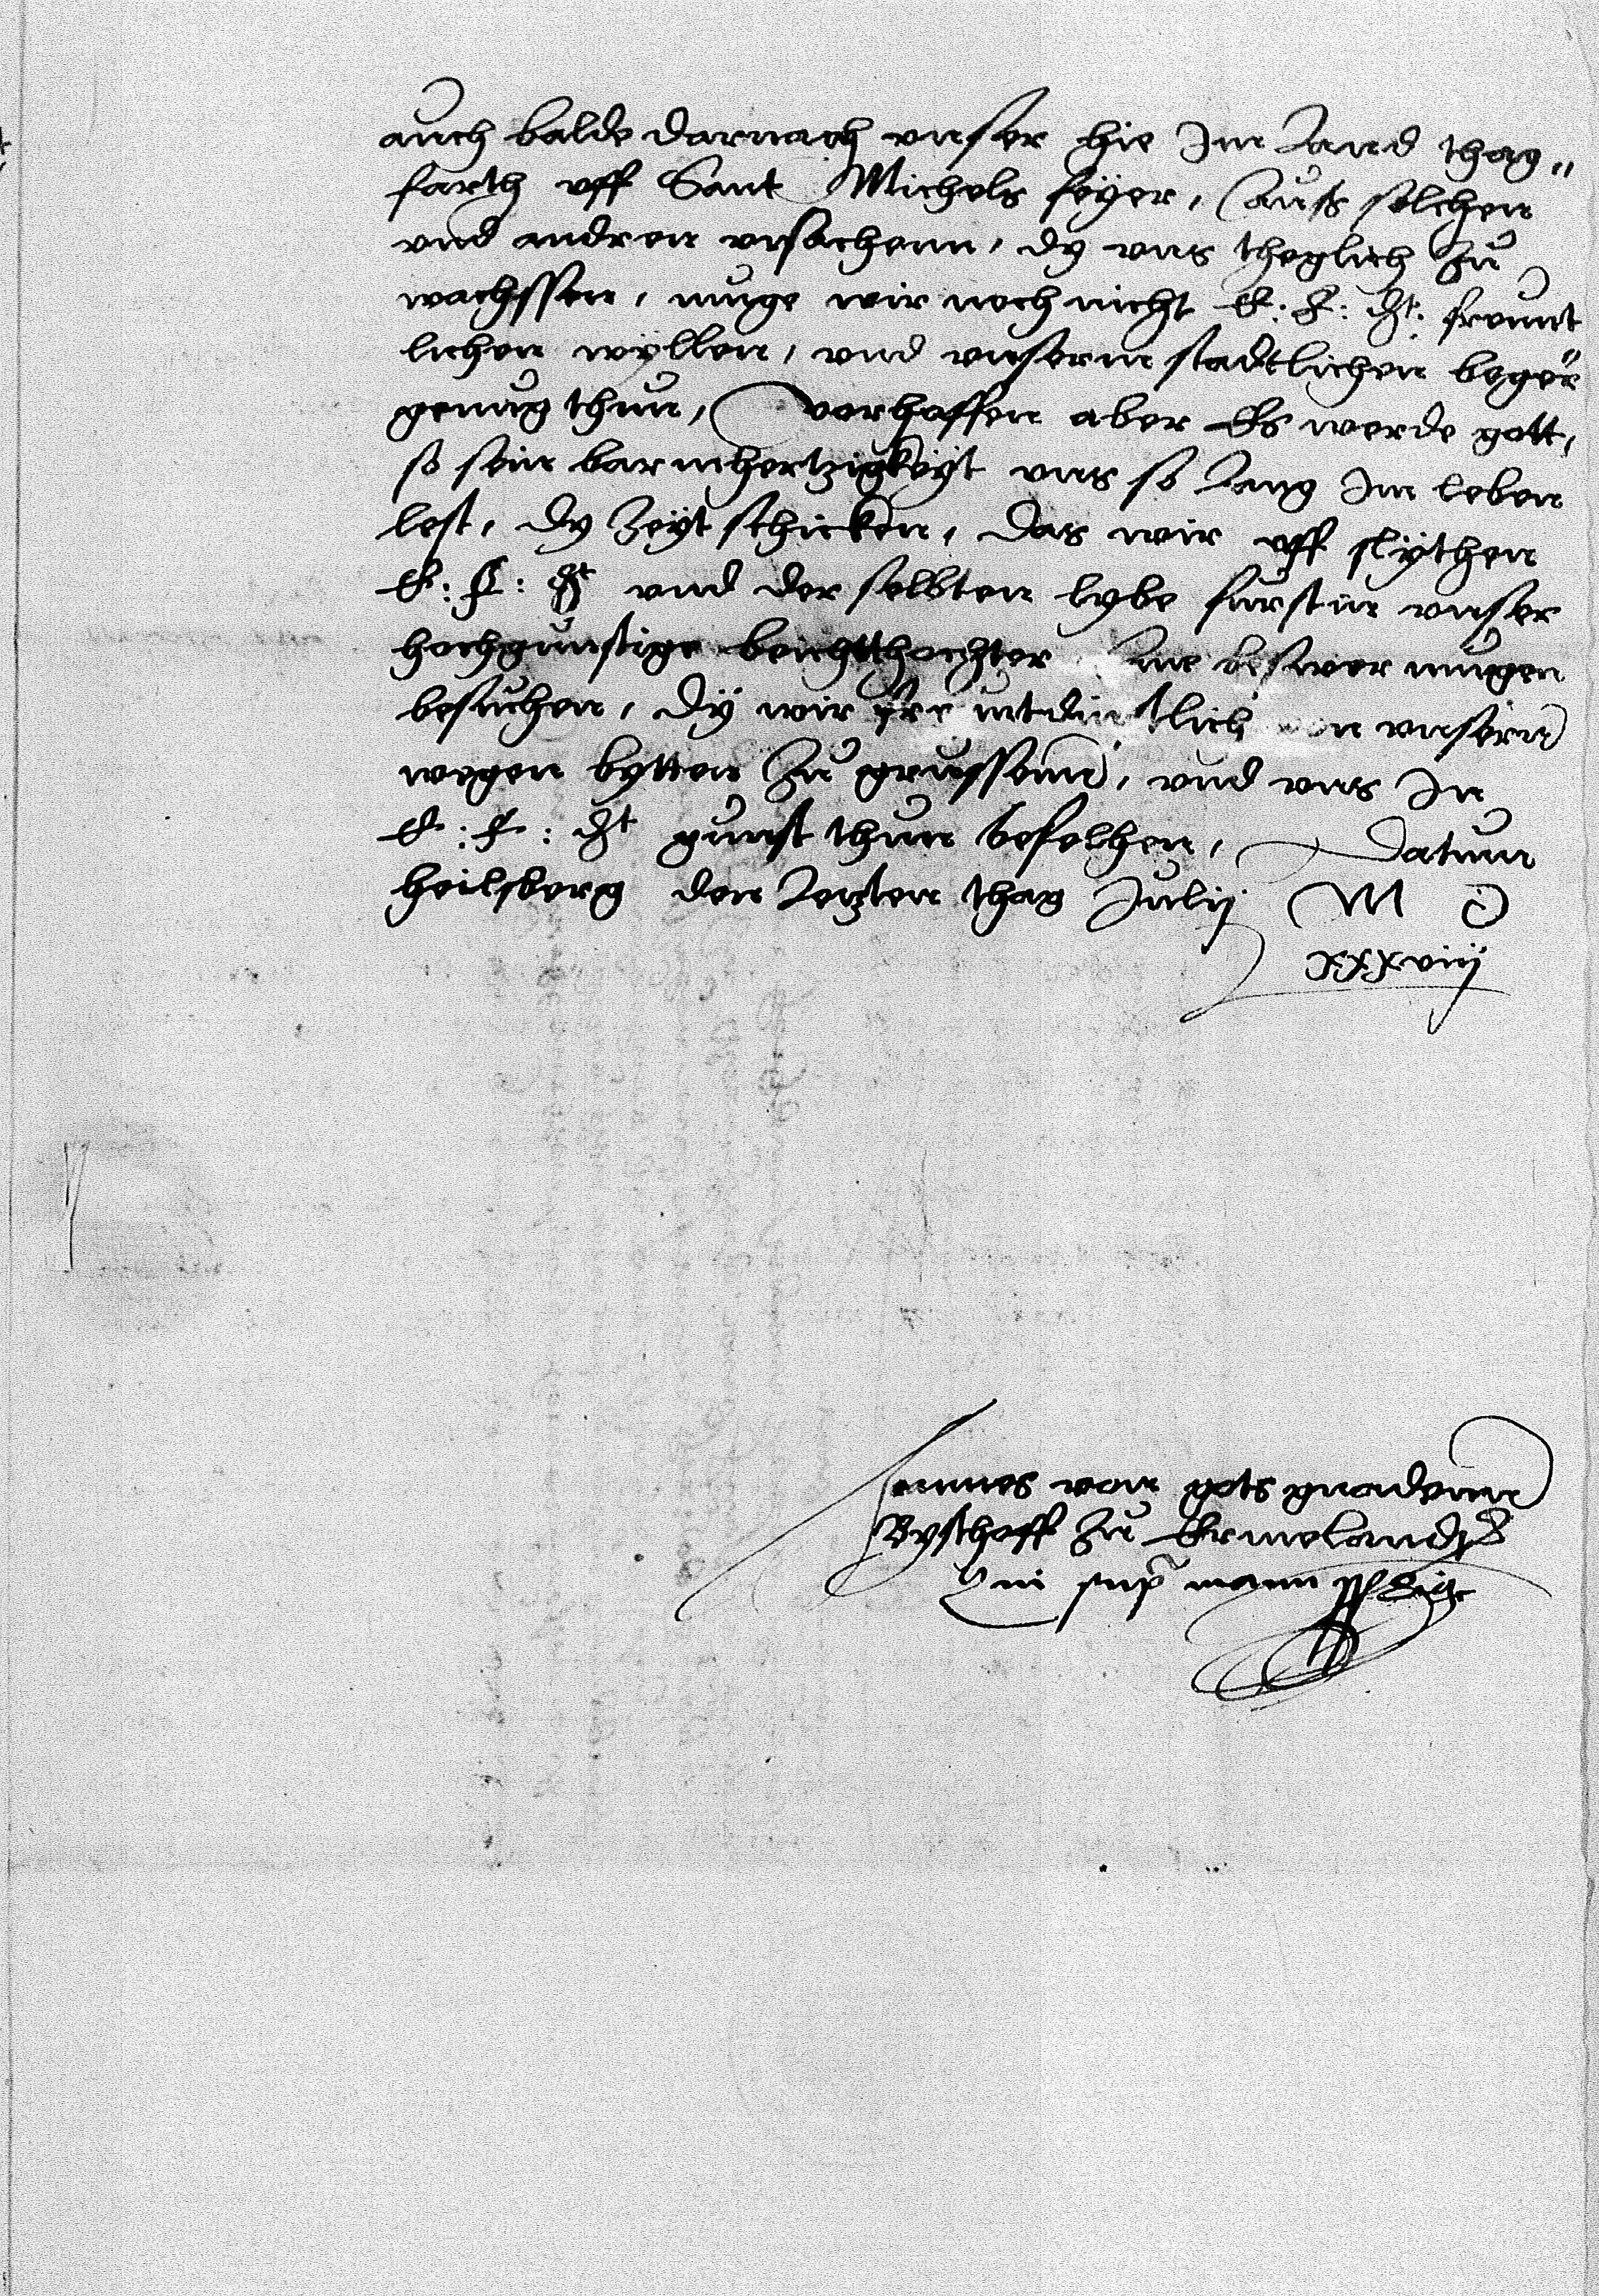 auch balde darnach vnser hie Im Land thag„
farth vff Sant Michels feyer, Auss solchen
vnd andren vrsachenn, dy vns theglich zu
wachssen, muge wir noch nicht E: F: Dt: freunt
lichen wyllen, vnd vnserm stadtlichen beger
genug thun, Vorhoffen aber Es werde gott,
so sein barmhertzigkeyt vns so lang Im leben
lest, dy zeyt schicken, das wir vff slythen
E: F: Dt vnd der selbten lybe furstin vnser
hochgunstige beichtthochter ane beswer mugen
besuchen, dy wir freuntdinstlich von vnsern
wegen bytten zu grussenn, vnd vns In
E: F: Dt gunst thun befelhen, Datum
heilsberg den letzten thag Julij M D
xxxviij
Joannes von gots gnadenn
Byschoff zu Ermelandt
manu